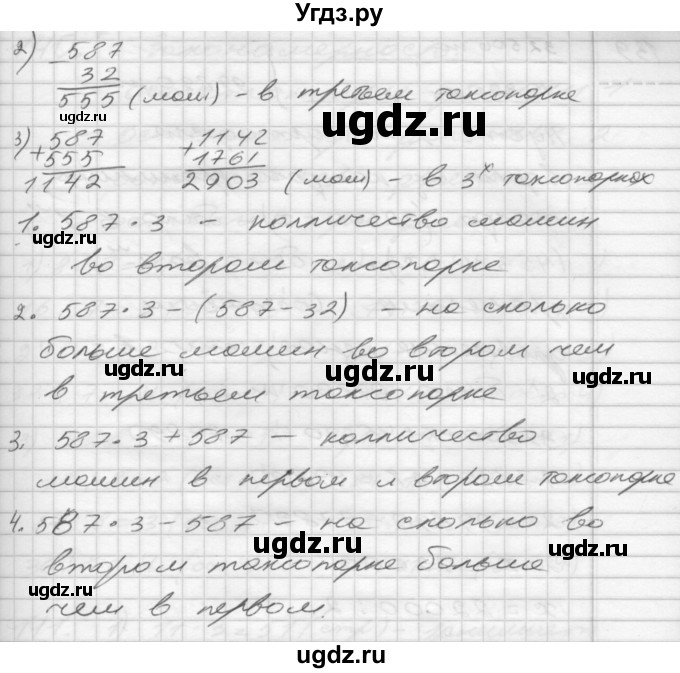 Угдз.ру
2) 587
32
555 (маш) - в третьем таксопарке
3) 587 1142
+ 555 + 1761
1142 2903 (маш) - в 3х таксопарках
1. 587 · 3 - колличество машин
во втором таксопарке
2. 587 · 3 - (587 - 32) - на сколько
больше машин во втором чем
в третьем таксопарке
3. 587 · 3 + 587 - колличество
машин в первом и втором таксопарке
4. 587 · 3 - 587 - на сколько во
втором таксопарке больше
чем в первом.
ugdz.ru
ugdz.ru
ugdz.ru
ugdz.ru
ugdz.ru
ugdz.ru
ugdz.ru
ugdz.ru
ugdz.ru
ugdz.ru
ugdz.ru
ugdz.ru
ugdz.ru